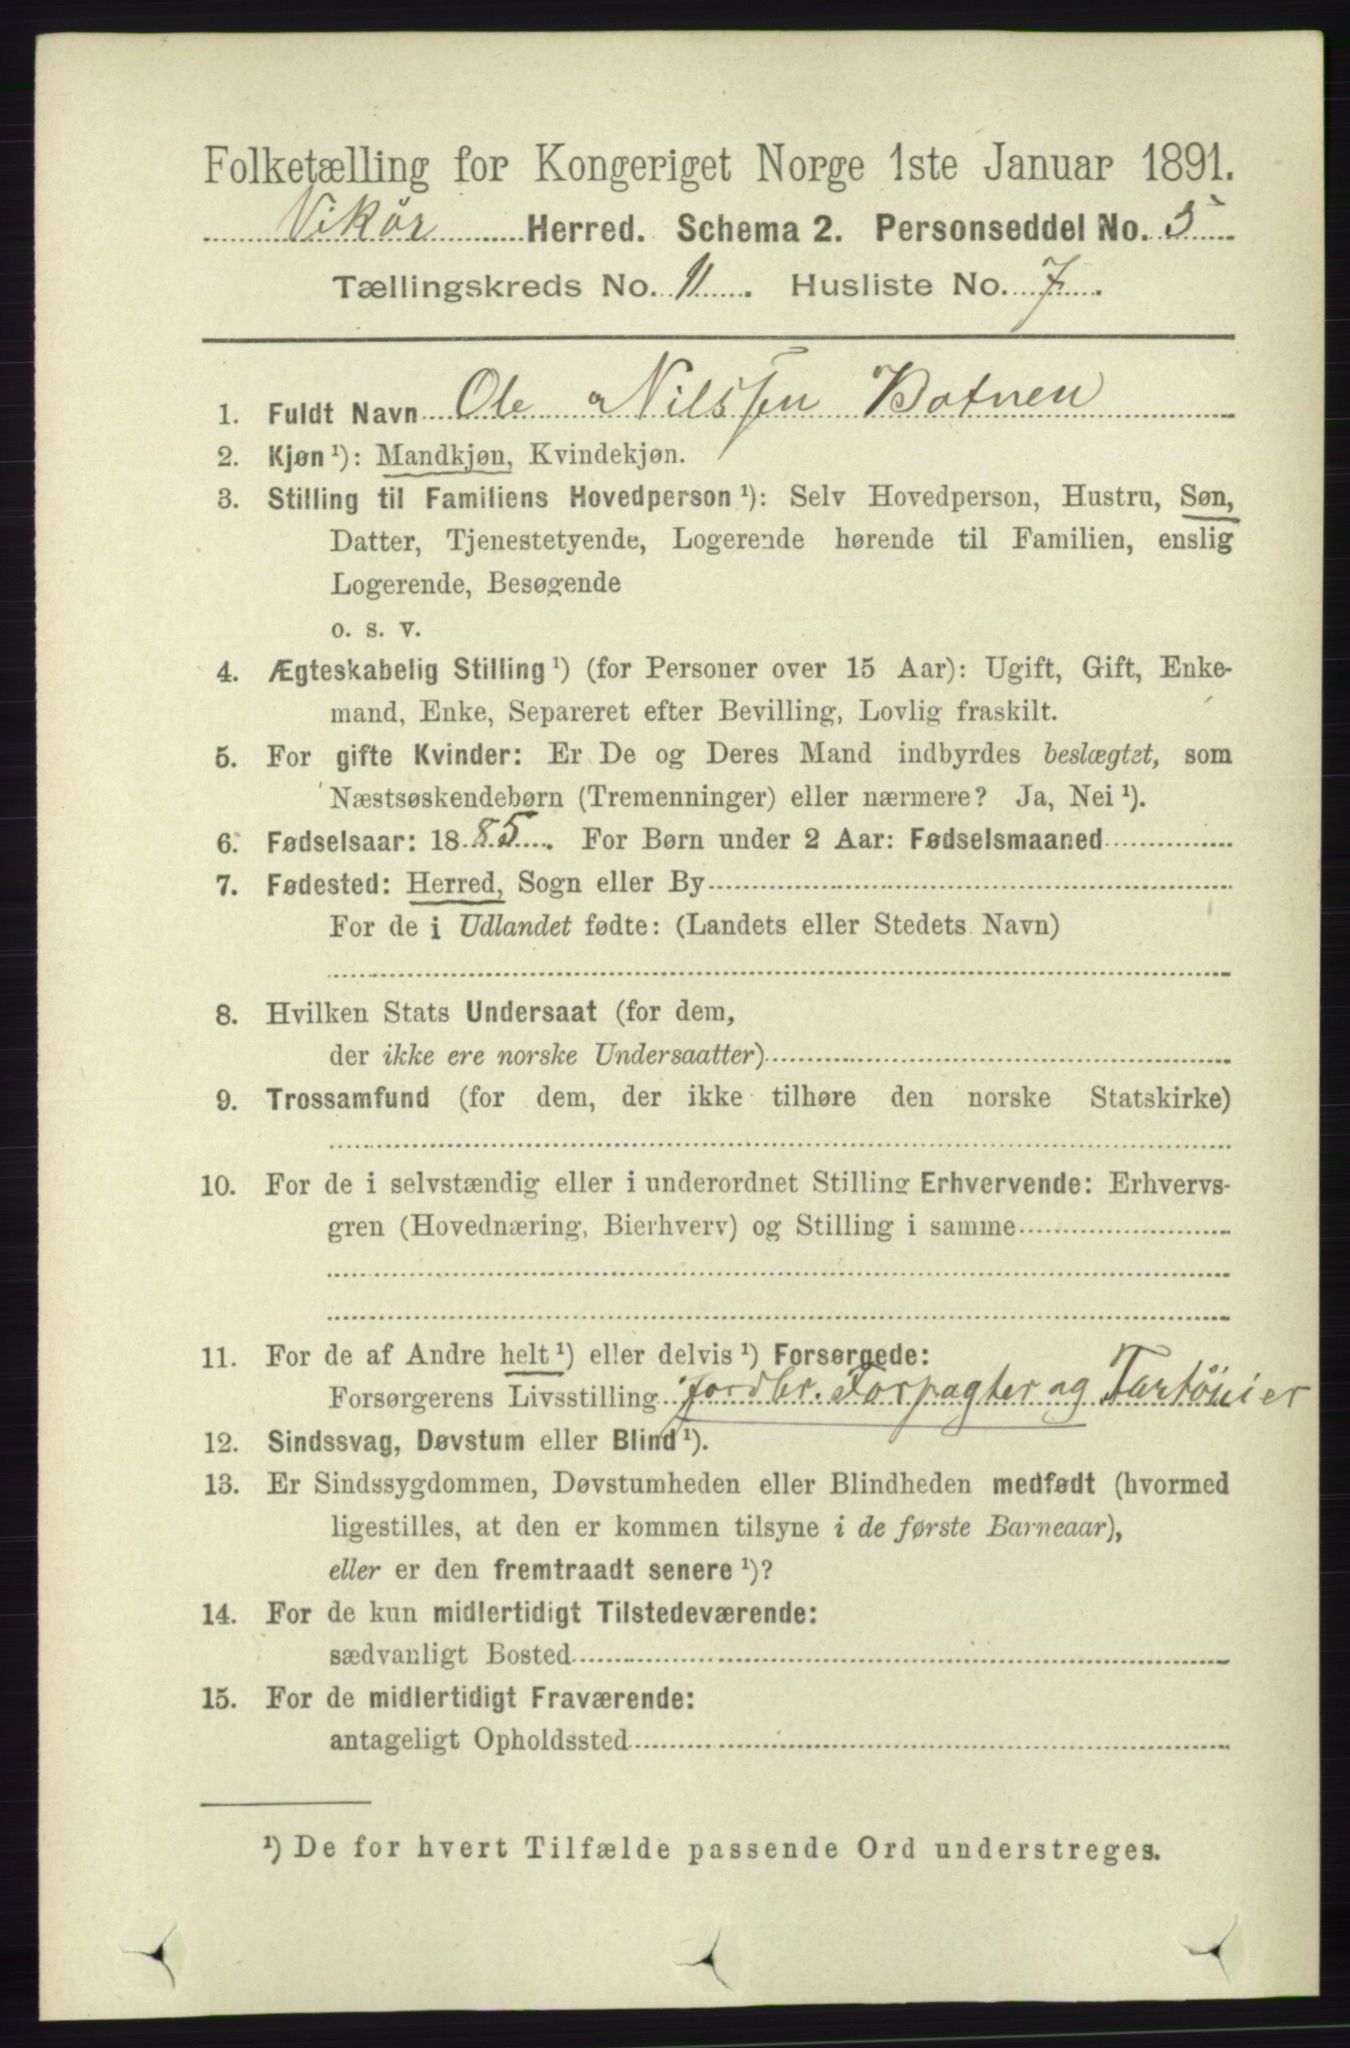 Folketælling for Kongeriget Norge 1ste Januar 1891.
Vikør Herred. Schema 2. Personseddel No. 5
Tællingskreds No. 11. Husliste No. 7.
1. Fuldt Navn Ole Nilssen Botnen
2. Kjøn ¹): Mandkjøn, Kvindekjøn.
3. Stilling til Familiens Hovedperson ¹): Selv Hovedperson, Hustru, Søn,
Datter, Tjenestetyende, Logerende hørende til Familien, enslig
Logerende, Besøgende
o. s. v.
4. Ægteskabelig Stilling ¹) (for Personer over 15 Aar): Ugift, Gift, Enke-
mand, Enke, Separeret efter Bevilling, Lovlig fraskilt.
5. For gifte Kvinder: Er De og Deres Mand indbyrdes beslægtet, som
Næstsøskendebørn (Tremenninger) eller nærmere? Ja, Nei ¹).
6. Fødselsaar: 1885. For Børn under 2 Aar: Fødselsmaaned
7. Fødested: Herred, Sogn eller By
For de i Udlandet fødte: (Landets eller Stedets Navn)
8. Hvilken Stats Undersaat (for dem,
der ikke ere norske Undersaatter)
9. Trossamfund (for dem, der ikke tilhøre den norske Statskirke)
10. For de i selvstændig eller i underordnet Stilling Erhvervende: Erhvervs-
gren (Hovednæring, Bierhverv) og Stilling i samme
11. For de af Andre helt ¹) eller delvis ¹) Forsørgede:
Forsørgerens Livsstilling Jordbr. Forpagter og
12. Sindssvag, Døvstum eller Blind ¹).
13. Er Sindssygdommen, Døvstumheden eller Blindheden medfødt (hvormed
ligestilles, at den er kommen tilsyne i de første Barneaar),
eller er den fremtraadt senere ¹)?
14. For de kun midlertidigt Tilstedeværende:
sædvanligt Bosted
15. For de midlertidigt Fraværende:
antageligt Opholdssted
¹) De for hvert Tilfælde passende Ord understreges.